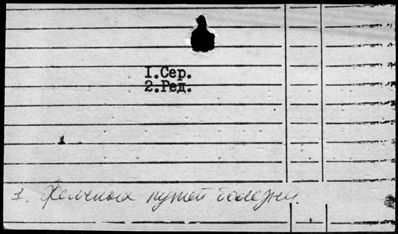 1.Сер.
2.Ред.
1. Желчных путей болезни.